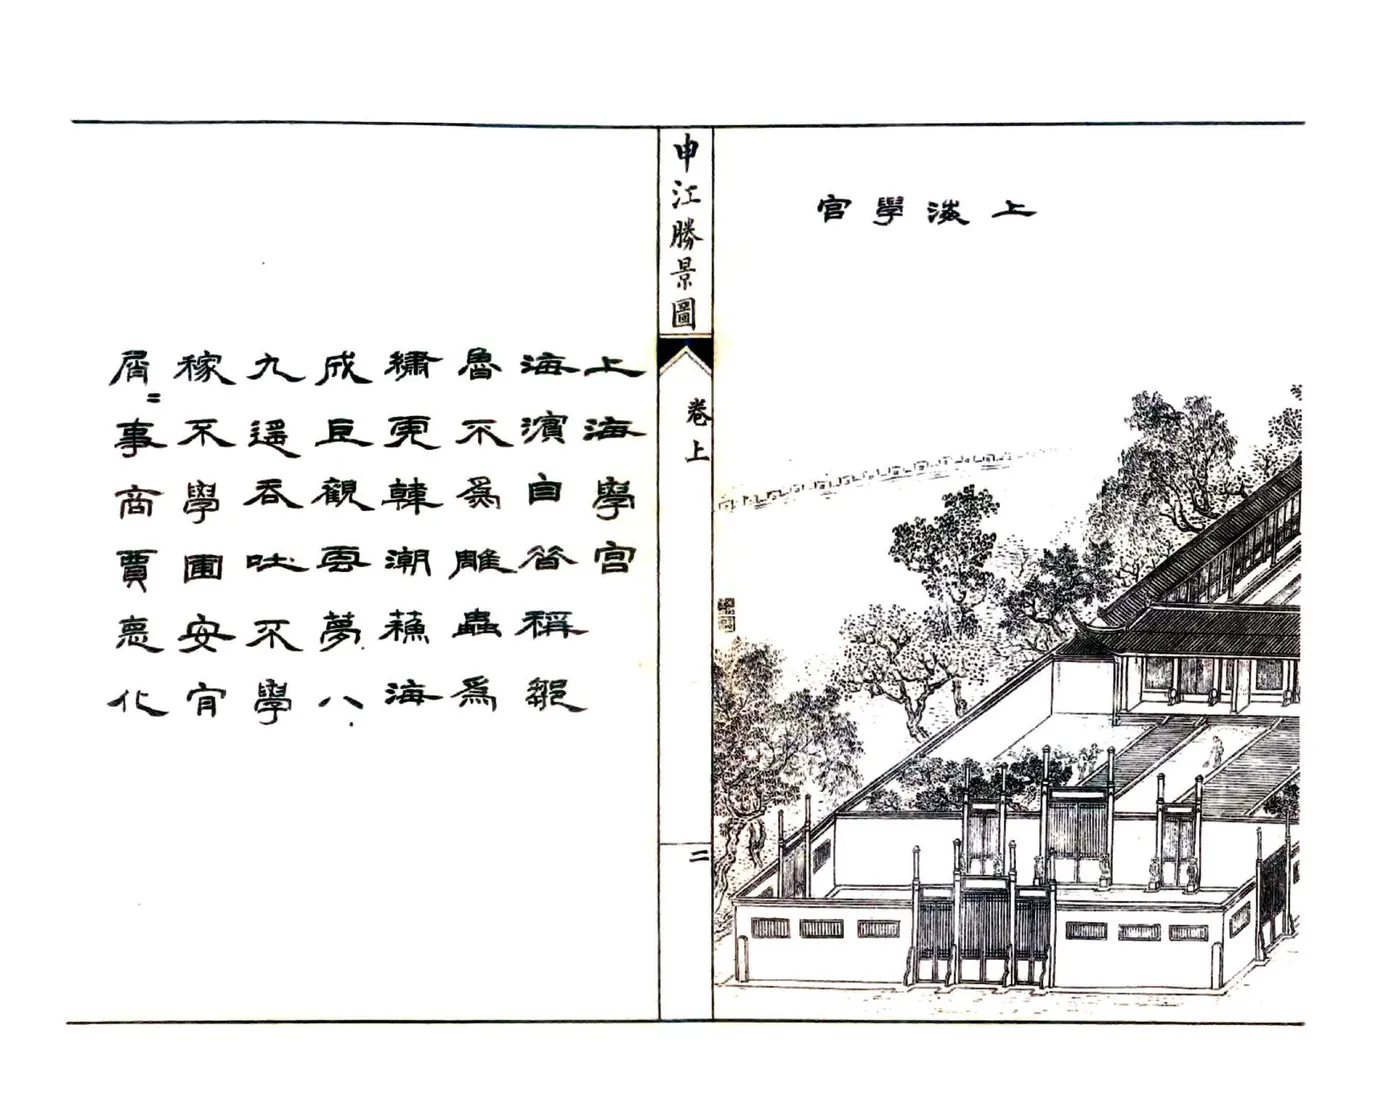 上海學宮
申江勝景圖
卷上
二
上海學宮
海濱自昔稱鄒
魯不爲雕蟲爲
繡更韓潮蘇海
成巨觀雲夢八
九遥吞吐不學
稼不學圃安肎
屑〻事商賈惪化